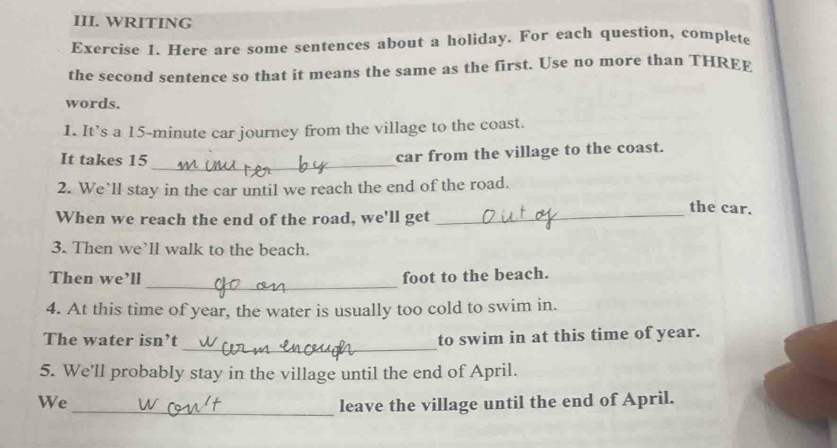 III. WRITING
Exercise 1. Here are some sentences about a holiday. For each question, complete
the second sentence so that it means the same as the first. Use no more than THREE
words.
1. It's a 15-minute car journey from the village to the coast.
It takes 15 minutes by car from the village to the coast.
2. We'll stay in the car until we reach the end of the road.
When we reach the end of the road, we'll get out of the car.
3. Then we'll walk to the beach.
Then we'll go on foot to the beach.
4. At this time of year, the water is usually too cold to swim in.
The water isn't warm enough to swim in at this time of year.
5. We'll probably stay in the village until the end of April.
We won't leave the village until the end of April.